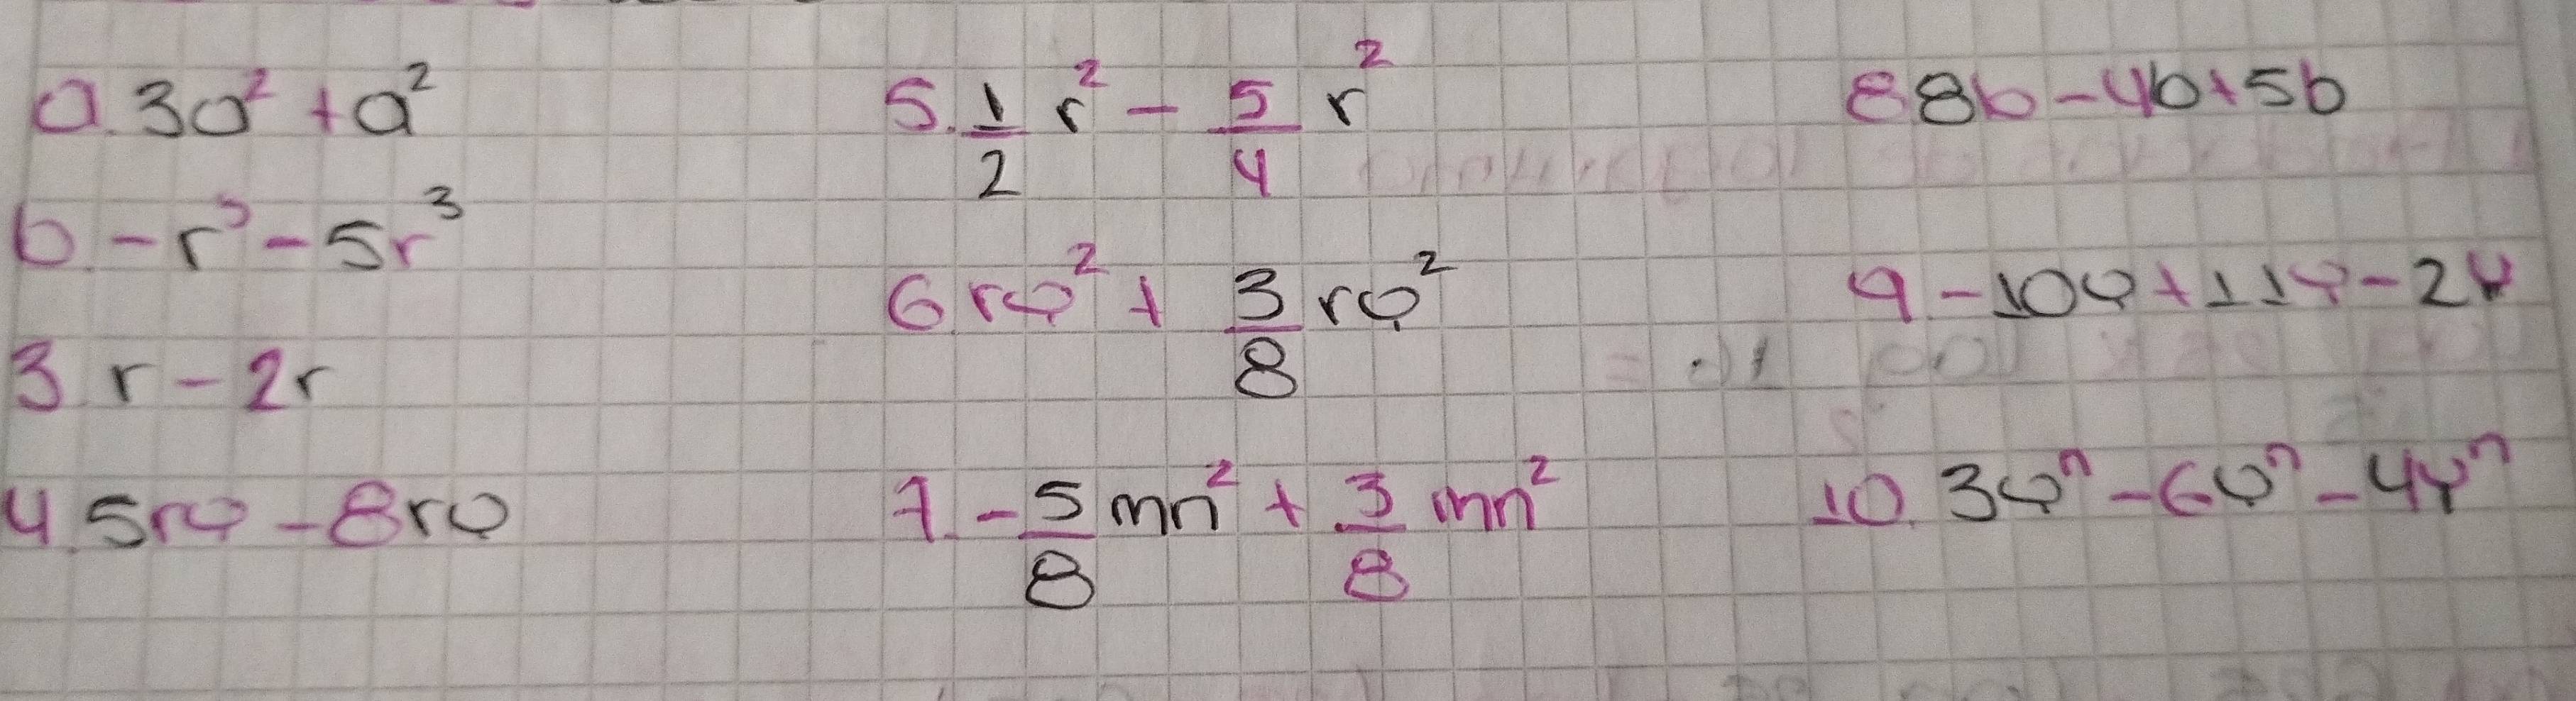 a. 3a² + a²
b. -r³ - 5r³
3. r - 2r
4. 5rφ - 8rφ
5. 1/2 r² - 5/4 r²
6. rφ² + 3/8 rφ²
7. -5/8 mn² + 3/8 mn²
8 8b - 4b + 5b
9 - 10φ + 11φ - 2φ
10. 3φⁿ - 6φⁿ - 4φⁿ